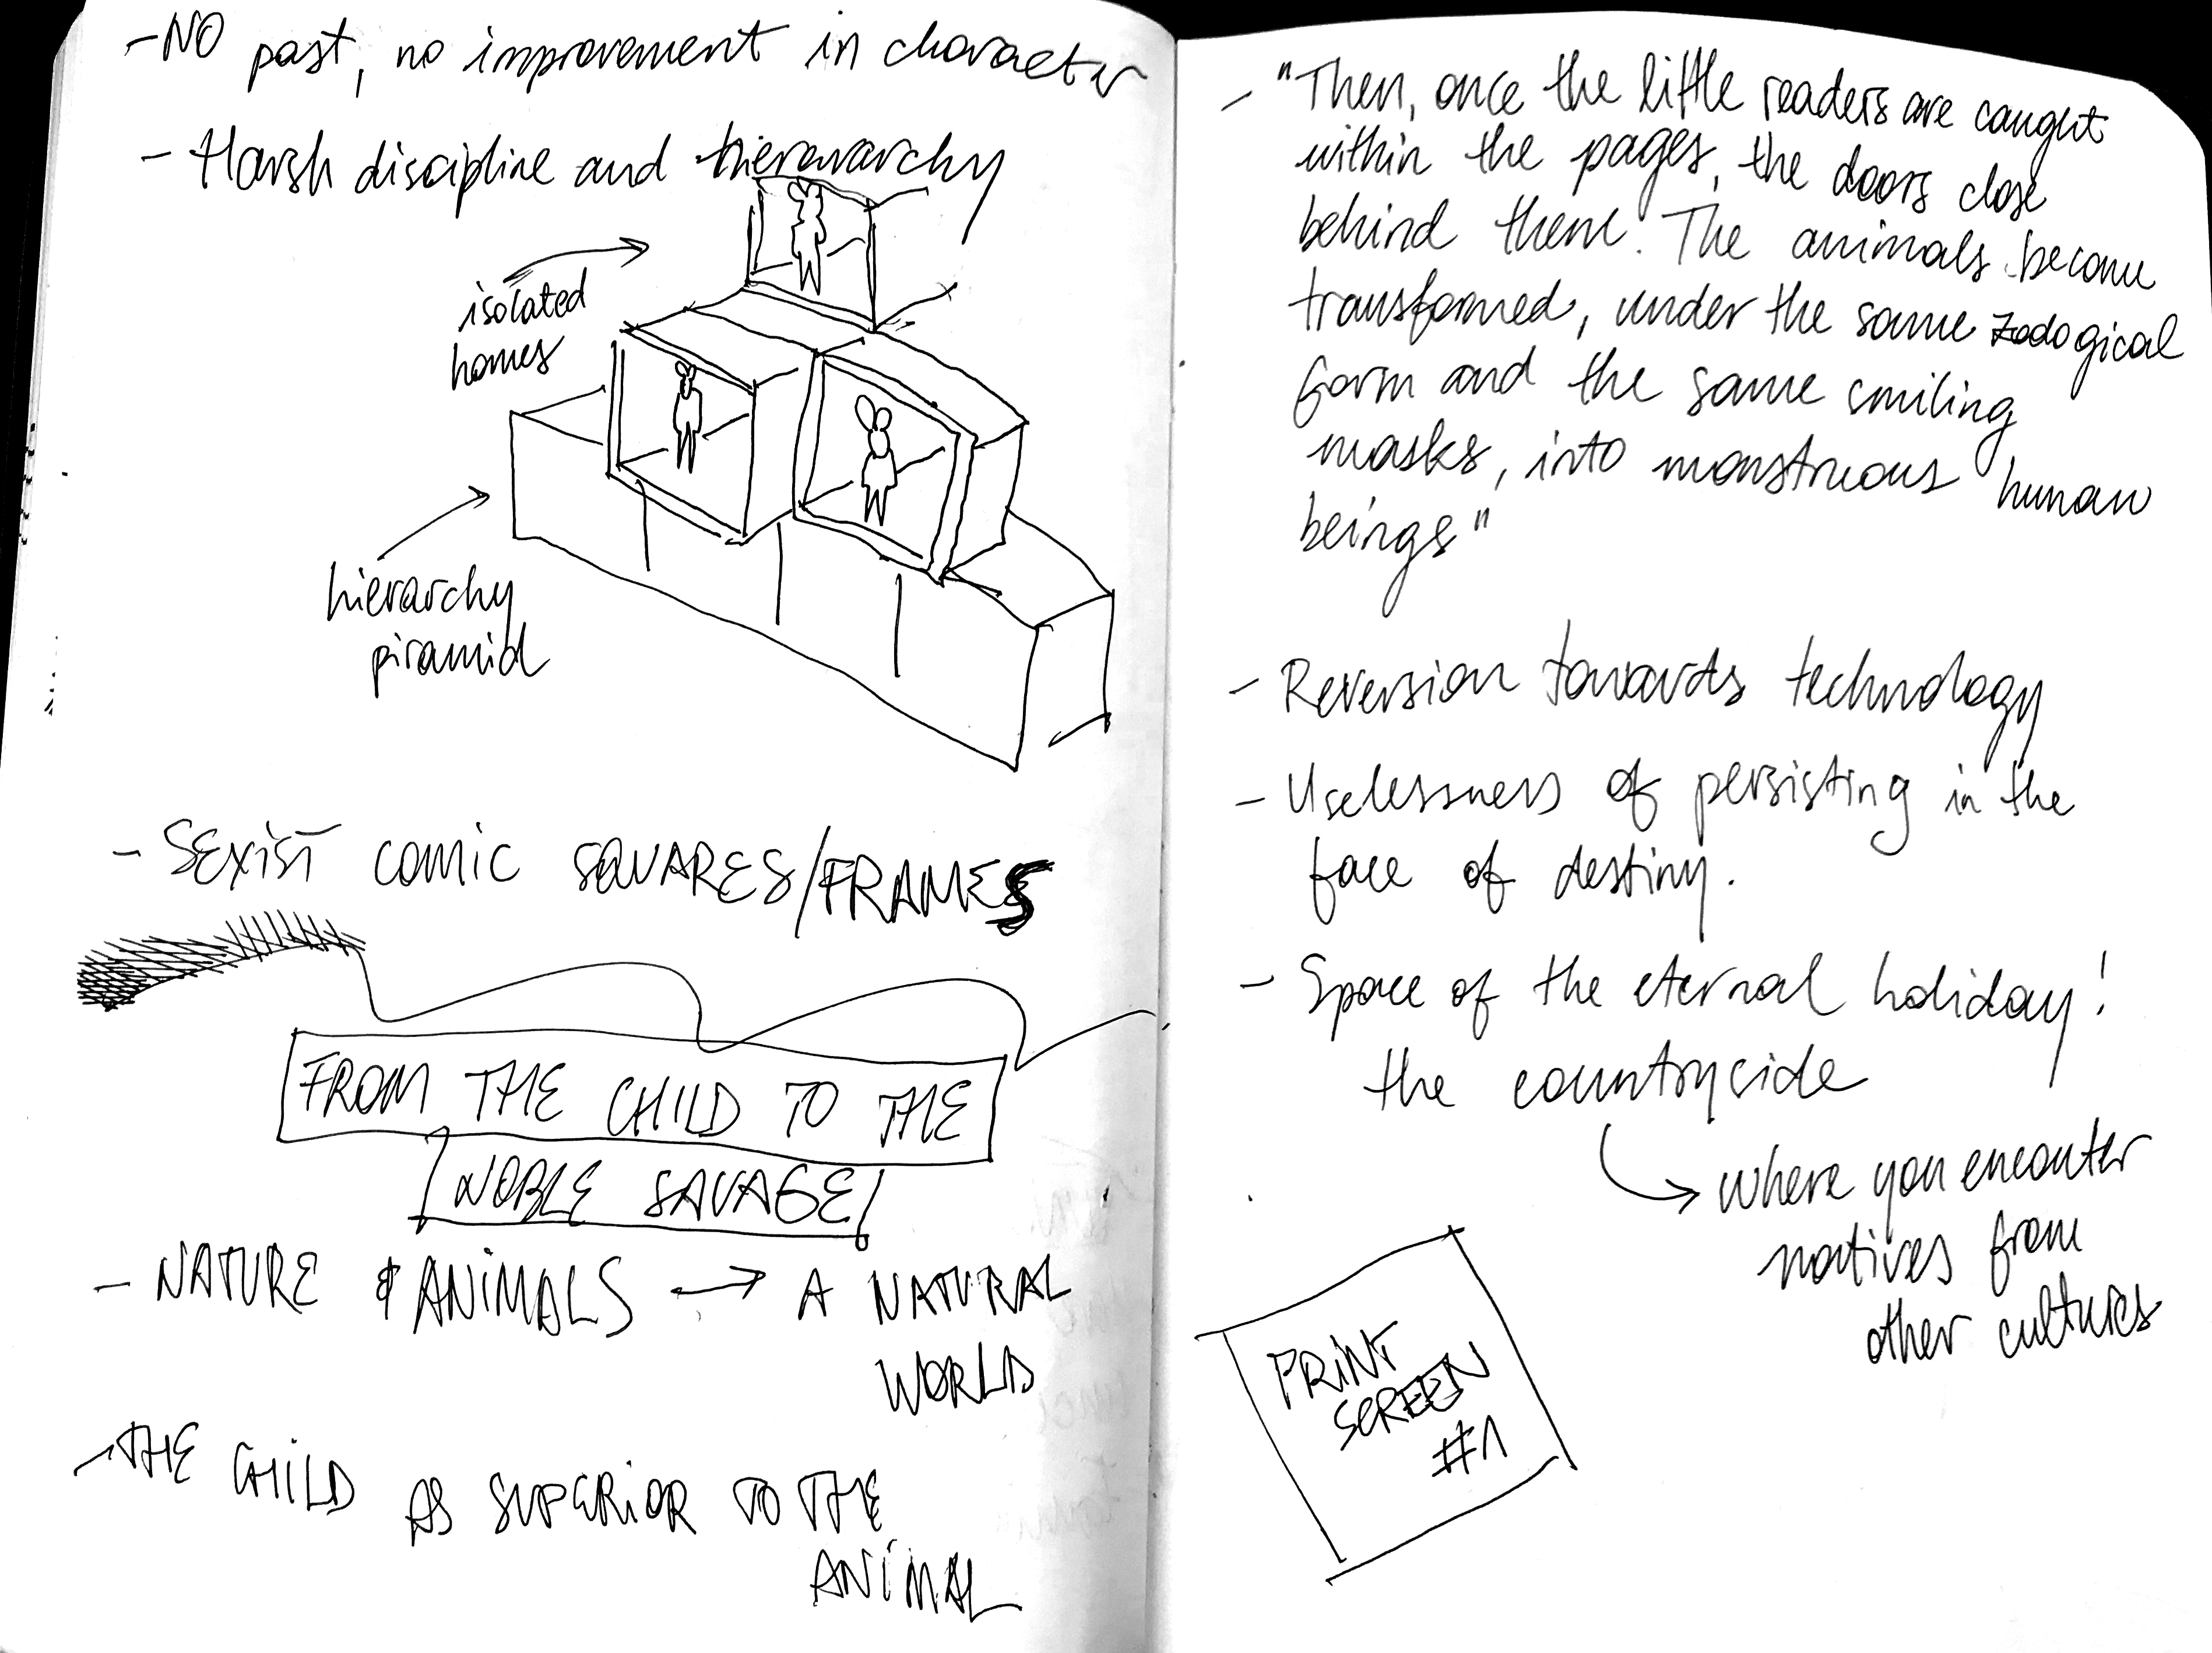 - NO past, no improvement in character
- Harsh discipline and hierararchy
isolated
homes
hierarchy
piramid
- SEXIST COMIC SQUARES/FRAMES
FROM THE CHILD TO THE
NOBLE SAVAGE
- NATURE & ANIMALS → A NATURAL
WORLD
- THE CHILD AS SUPERIOR TO THE
ANIMAL
- "Then, once the little readers are caught
within the pages, the doors close
behind them. The animals become
transformed, under the same zoological
form and the same smiling
masks, into monstruous human
beings"
- Reversion towards technology
- Uselessness of persisting in the
face of destiny.
- Space of the eternal holiday!
the countryside
→ where you enconter
natives from
other cultures
PRINT
SCREEN
#1